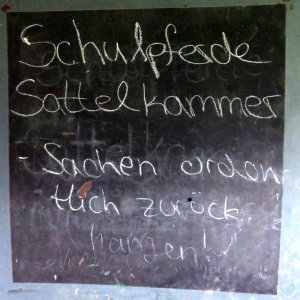 Schulpferde
Sattelkammer
- Sachen orden
tlich zurück
hängen!